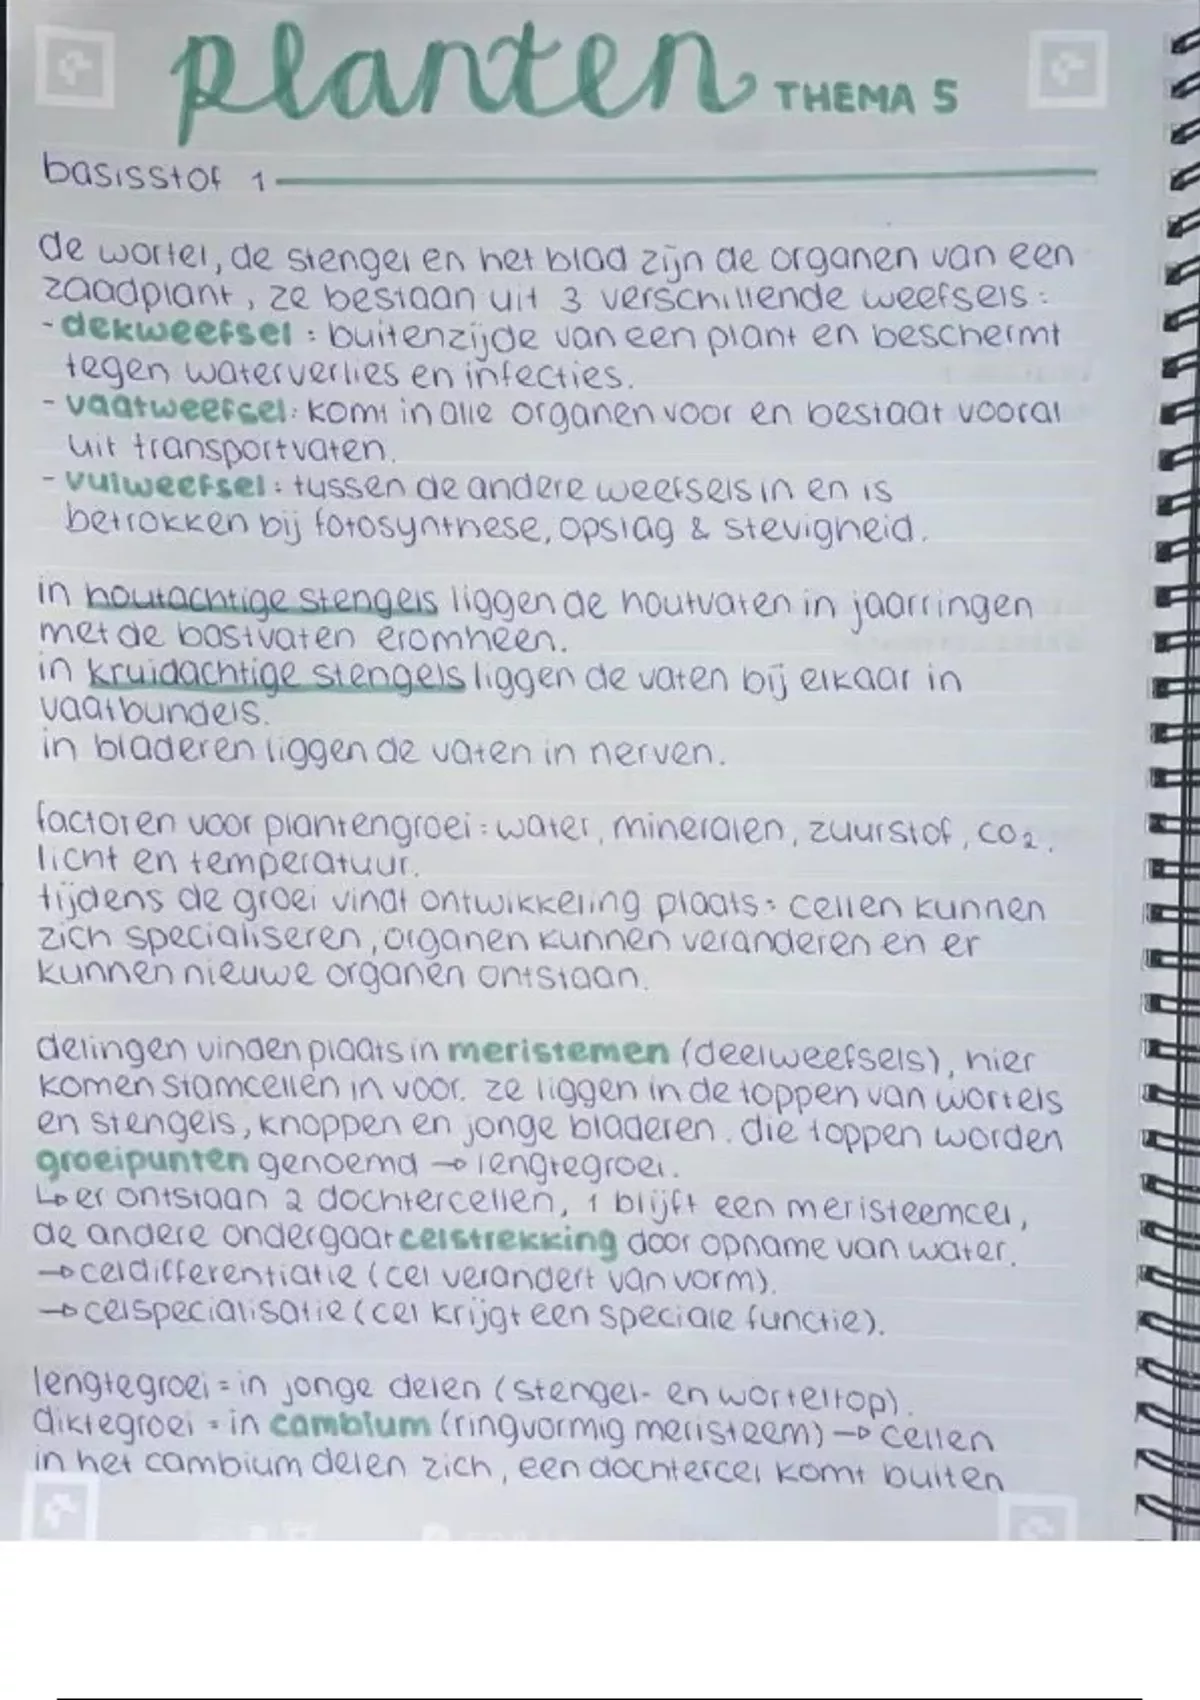 planten THEMA 5
basisstof 1
de wortel, de stengel en het blad zijn de organen van een
zaadplant, ze bestaan uit 3 verschillende weefsels:
- dekweefsel: buitenzijde van een plant en beschermt
tegen waterverlies en infecties.
- vaatweefsel: komt in alle organen voor en bestaat vooral
uit transportvaten.
- vulweefsel: tussen de andere weefsels in en is
betrokken bij fotosynthese, opslag & stevigheid.
in houtachtige stengels liggen de houtvaten in jaarringen
met de bastvaten eromheen.
in kruidachtige stengels liggen de vaten bij elkaar in
vaatbundels.
in bladeren liggen de vaten in nerven.
factoren voor plantengroei: water, mineralen, zuurstof, CO2,
licht en temperatuur.
tijdens de groei vindt ontwikkeling plaats: cellen kunnen
zich specialiseren, organen kunnen veranderen en er
kunnen nieuwe organen ontstaan.
delingen vinden plaats in meristemen (deelweefsels), hier
komen stamcellen in voor. ze liggen in de toppen van wortels
en stengels, knoppen en jonge bladeren. die toppen worden
groeipunten genoemd → lengtegroei.
↳ er ontstaan 2 dochtercellen, 1 blijft een meristeemcel,
de andere ondergaat celstrekking door opname van water.
→ celdifferentiatie (cel verandert van vorm).
→ celspecialisatie (cel krijgt een speciale functie).
lengtegroei = in jonge delen (stengel- en worteltop).
diktegroei = in cambium (ringvormig meristeem) → cellen
in het cambium delen zich, een dochtercel komt buiten